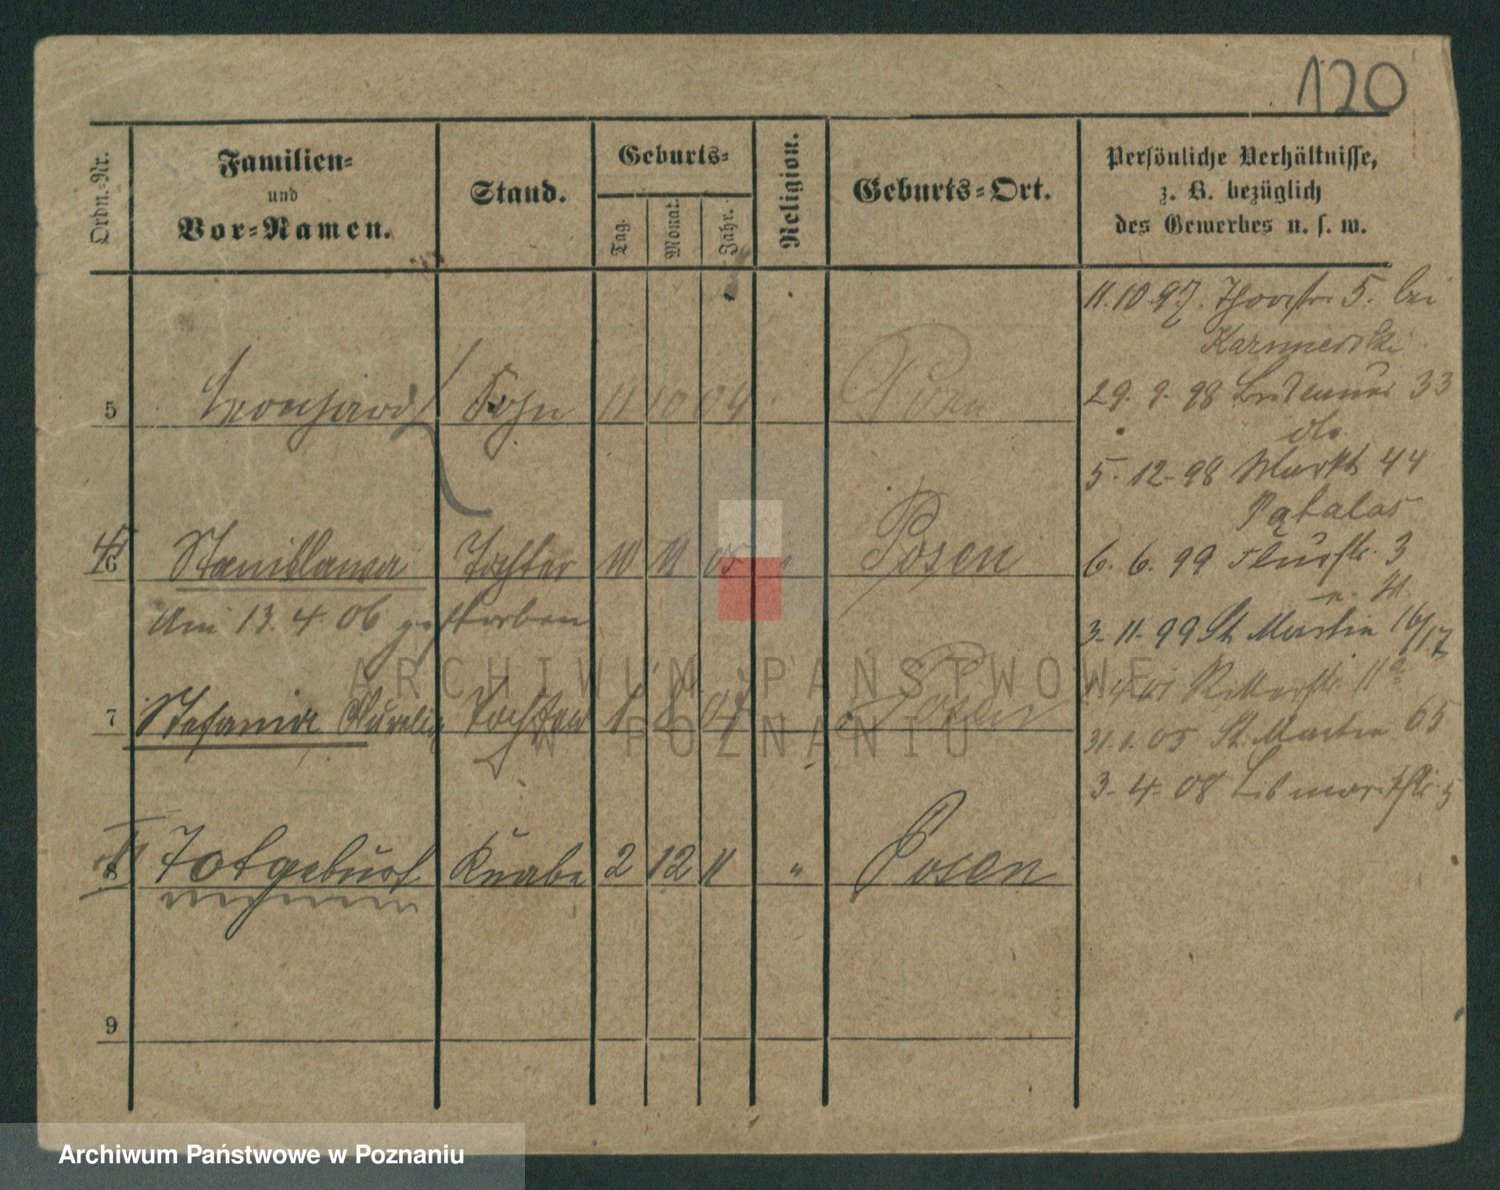 120
Ordn.-Nr.
Familien-
und
Vor-Namen.
Stand.
Geburts-
Tag.
Monat.
Jahr.
Religion.
Geburts-Ort.
Persönliche Verhältnisse,
z. B. bezüglich
des Gewerbes u. s. w.
11.10.97. Thorstr. 5. bei
29. 9. 98 33
do
5. 12. 98 Markt 44
6. 6. 99 Flurstr. 3
3. 11. 99 St. Martin 16/17
01 Ritterstr. 11a
31.1.05 St. Martin 65
3. 4. 08
5 Leonhard Sohn 11 10 04 Posen
6 Stanislawa Tochter 10 11 05 " Posen
Am 13. 4. 06 gestorben
7 Stefania Aurelia Tochter Posen
8 Totgeburt Knabe 2 12 11 " Posen
9
ARCHIWUM PAŃSTWOWE
W POZNANIU
Archiwum Państwowe w Poznaniu